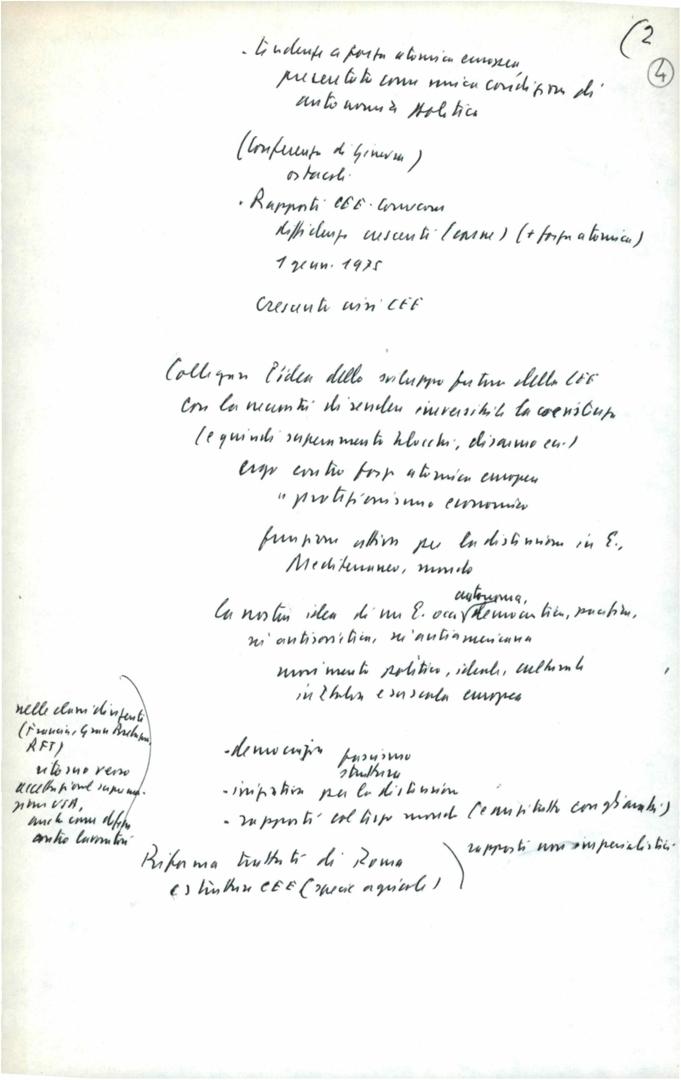 (2
4
- tendenze a forza atomica europea
presentata come unica condizione di
autonomia politica
(Conferenza di Ginevra)
ostacoli
- Rapporti CEE-Comecon
diffidenze crescenti (cause) (+ forza atomica)
1 genn. 1975
Crescente crisi CEE
Collegare l'idea dello sviluppo futuro della CEE
con la necessità di rendere irreversibile la coesistenza
(e quindi superamento blocchi, disarmo ecc.)
ergo contro forza atomica europea
" protezionismo economico
funzione attiva per la distensione in E.,
Mediterraneo, mondo
autonoma,
la nostra idea di un'E. occ. democratica, pacifica,
né antisovietica, né antiamericana
movimento politico, ideale, culturale
in Italia e su scala europea
nelle classi dirigenti
(Francia, Gran Bretagna,
RFT)
ritorno verso
accettazione suprema-
zione USA,
anche come difesa
contro lavoratori
- democrazia fascismo
struttura
- iniziative per la distensione
- rapporti col terzo mondo (e anzitutto con gli arabi)
rapporti non imperialistici
Riforma trattati di Roma
e strutture CEE (specie agricole)